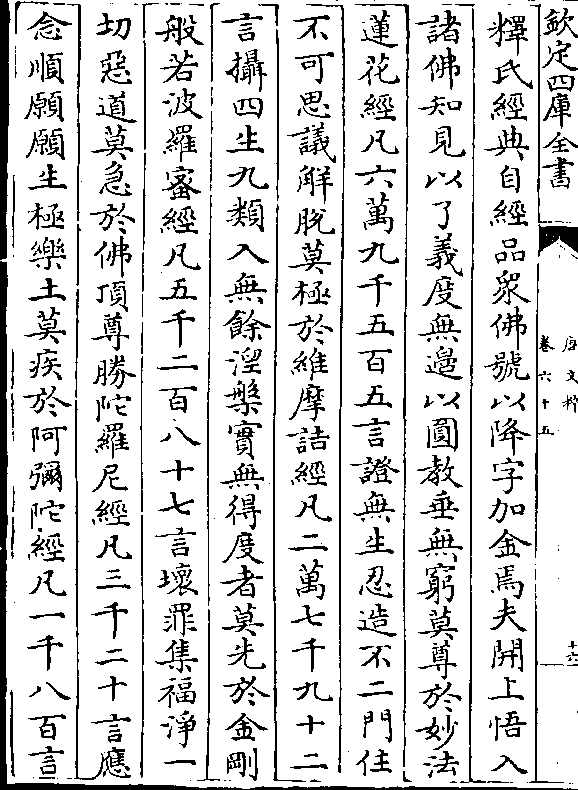 欽定四庫全書
唐文粹
卷六十五
十六
釋氏經典自經品衆佛號以降字加金焉夫開上悟入
諸佛知見以了義度無邉以圓教垂無窮莫尊於妙法
蓮花經凡六萬九千五百五言證無生忍造不二門住
不可思議解脫莫極於維摩詰經凡二萬七千九十二
言攝四生九類入無餘涅槃實無得度者莫先於金剛
般若波羅蜜經凡五千二百八十七言壞罪集福淨一
切惡道莫急於佛頂尊勝陀羅尼經凡三千二十言應
念順願願生極樂土莫疾於阿彌陀經凡一千八百言